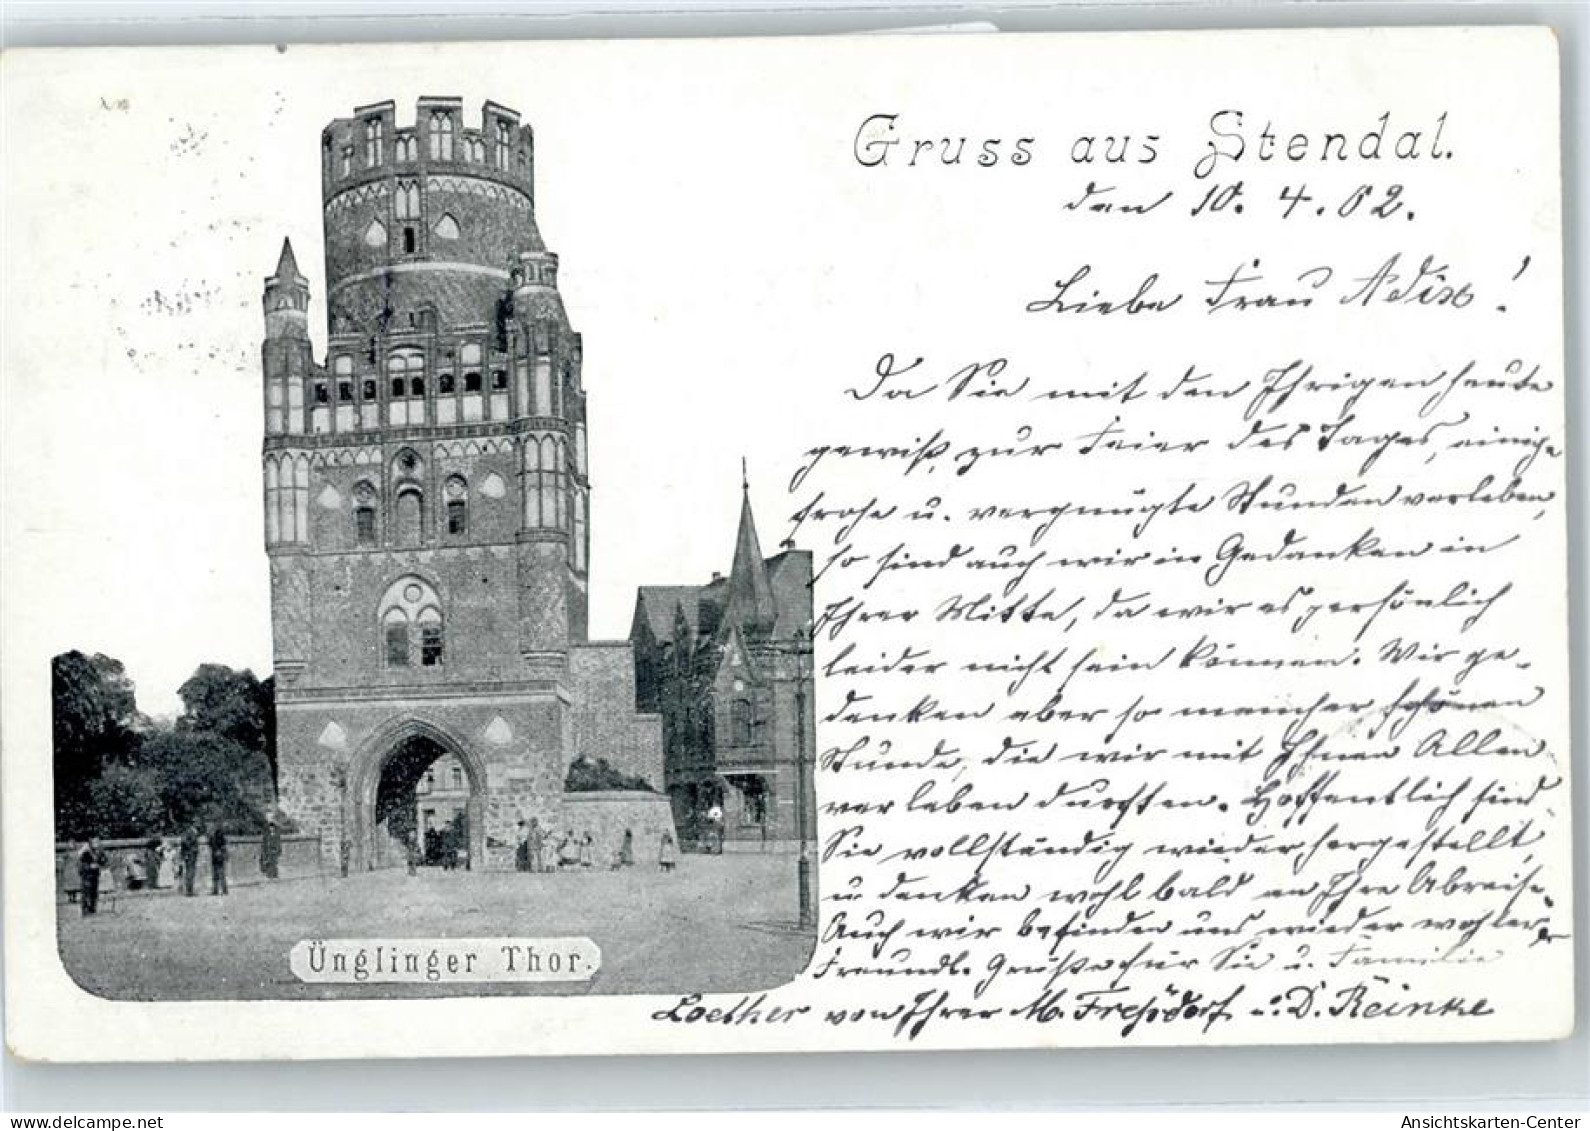 Gruss aus Stendal.
den 10. 4. 02.
Liebe Frau Adix!
Da Sie mit den Ihrigen heute
gewiß, zur Feier des Tages, einige
frohe u. vergnügte Stunden verleben,
so sind auch wir in Gedanken in
Ihrer Mitte, da wir es persönlich
leider nicht sein können. Wir ge-
denken aber so mancher schönen
Stunde, die wir mit Ihnen Allen
verleben durften. Hoffentlich sind
Sie vollständig wieder hergestellt
u. denken wohl bald an Ihre Abreise.
Auch wir befinden uns wieder wohler
Freundl. Grüße für Sie u. Familie
von Ihrer M. u. D. Reinke
Üuglinger Thor.
Üngliner-Photo: delcampe.net
Ansichtskarten-Center